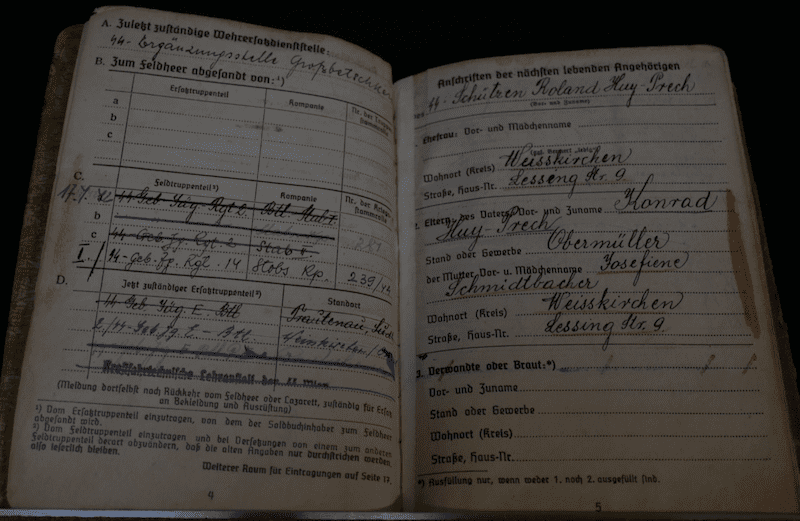 A. Zuletzt zuständige Wehrersatzdienststelle:
44-Ergänzungsstelle Großbetschkerek
B. Zum Feldheer abgesandt von:¹)
Ersatztruppenteil Kompanie Nr. der Truppenstammrolle
a
b
c
C.
Feldtruppenteil²) Kompanie Nr. der Kriegsstammrolle
44 Geb Jäg. Rgt 2. Btl. Stab I.
b
c 44-Geb. Jg. Rgt-2 Stab I.
I. 44-geb. Jg. Rgt. 14 Stobs Kp. 239/42
D.
Jetzt zuständiger Ersatztruppenteil²) Standort
44 Geb. Jäg. E. Btl. Trautenau,
2./44-Geb. Jg. E.-Btl.
Kraftfahrtechnische Lehranstalt der 44 Wien
(Meldung dortselbst nach Rückkehr vom Feldheer oder Lazarett, zuständig für Ersatz
an Bekleidung und Ausrüstung)
¹) Vom Ersatztruppenteil einzutragen, von dem der Soldbuchinhaber zum Feldheer
abgesandt wird.
²) Vom Feldtruppenteil einzutragen und bei Versetzungen von einem zum anderen
Feldtruppenteil derart abzuändern, daß die alten Angaben nur durchstrichen werden,
also leserlich bleiben.
Weiterer Raum für Eintragungen auf Seite 17.
4
Anschriften der nächsten lebenden Angehörigen
44-Schützen Roland Huy-Prech
(Vor- und Zuname)
Ehefrau: Vor- und Mädchenname
Wohnort (Kreis) Weisskirchen
Straße, Haus-Nr. Lessing Str. 9
Eltern: des Vaters, Vor- und Zuname Konrad
Huy-Prech
Stand oder Gewerbe Obermüller
der Mutter, Vor- u. Mädchenname Josefiene
Schmidtbacher
Wohnort (Kreis) Weisskirchen
Straße, Haus-Nr. Lessing Str. 9.
3. Verwandte oder Braut:*)
Vor- und Zuname
Stand oder Gewerbe
Wohnort (Kreis)
Straße, Haus-Nr.
*) Ausfüllung nur, wenn weder 1. noch 2. ausgefüllt sind.
5